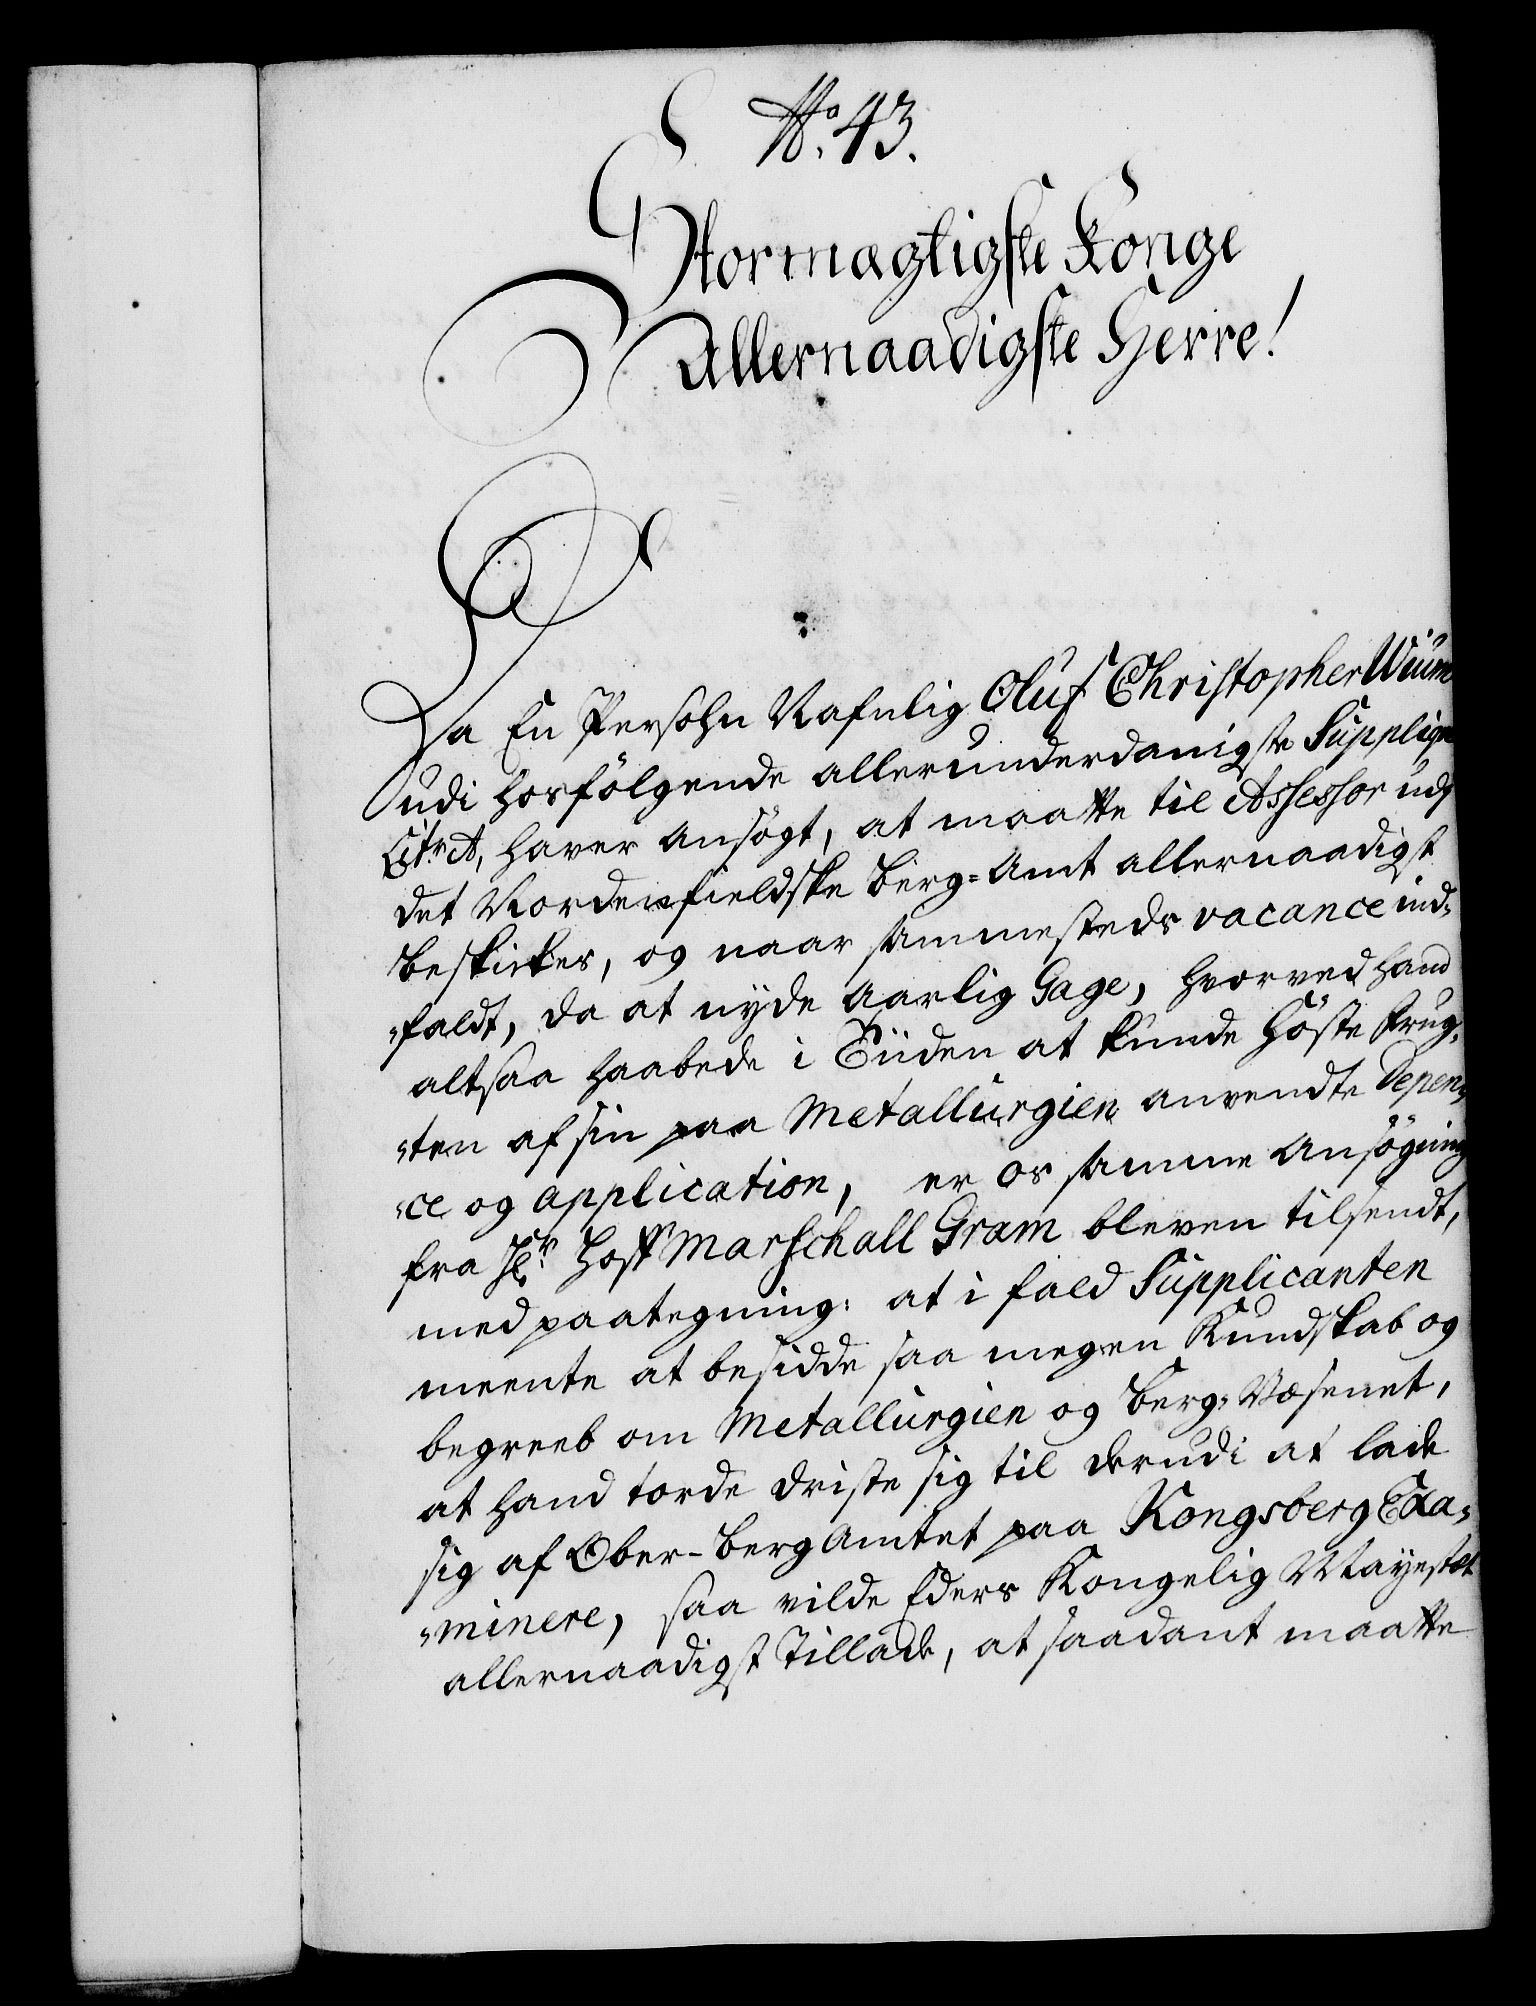 No. 43.
Stormægtigste Konge
Allernaadigste Herre!
Da En Persohn Nafnlig Oluf Christopher Wiūm
udi hosfölgende allerunderdanigste Suppliqve
Litr. A, haver ansögt, at maatte til Assessor udj
det Nordenfieldske Berg-Amt allernaadigst
beskikkes, og naar sammesteds vacance ind-
-faldt, da at nyde Aarlig Gage, hvorved hand
altsaa haabede i Tiiden at kunde Höste Frug-
-ten af sin paa Metallurgien anvendte Depen-
-ce og application, er os samme Ansögning
fra Hr. Hoff Marschall Gram bleven tilsendt,
med paategning: at i fald Supplicanten
meente at besidde saa megen Kundskab og
begreeb om Metallurgien og Berg-Væsenet,
at hand torde driste sig til derudi at lade
sig af Ober-Berg Amtet paa Kongsberg Exa-
-minere, saa vilde Eders Kongelig Mayestæt
allernaadigst Tillade, at saadant maatte